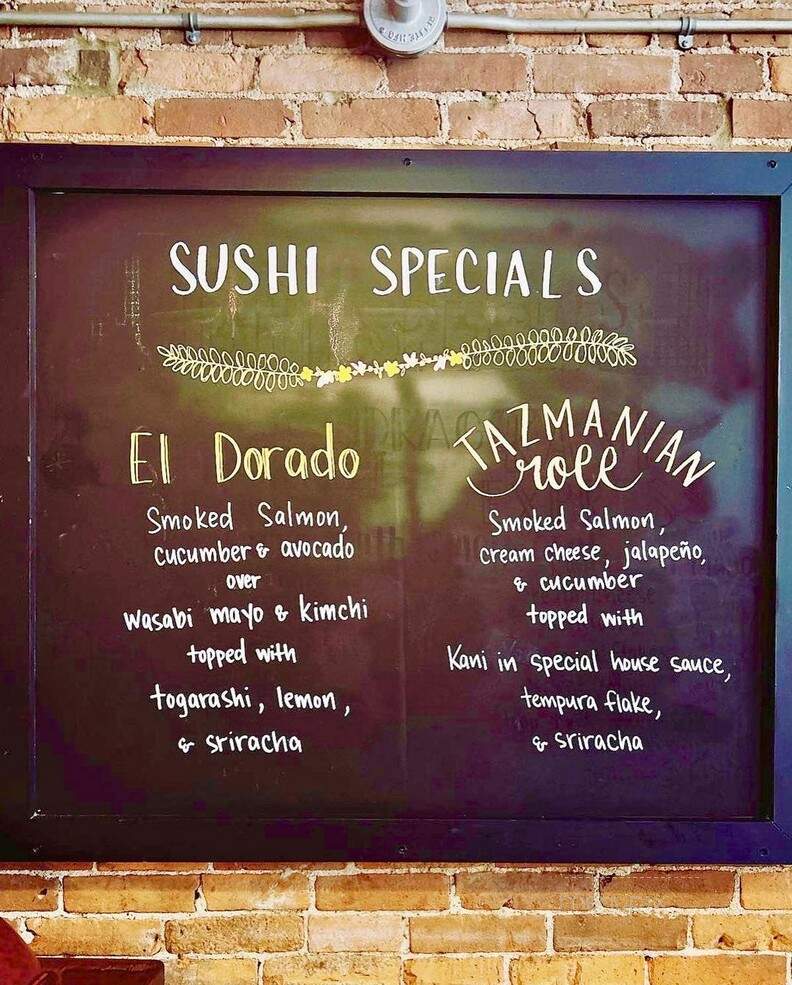 SUSHI SPECIALS
El Dorado
Smoked Salmon,
cucumber & avocado
over
wasabi mayo & kimchi
topped with
togarashi, lemon,
& sriracha
TAZMANIAN
roll
Smoked Salmon,
cream cheese, jalapeño,
& cucumber
topped with
Kani in special house sauce,
tempura flake,
& sriracha